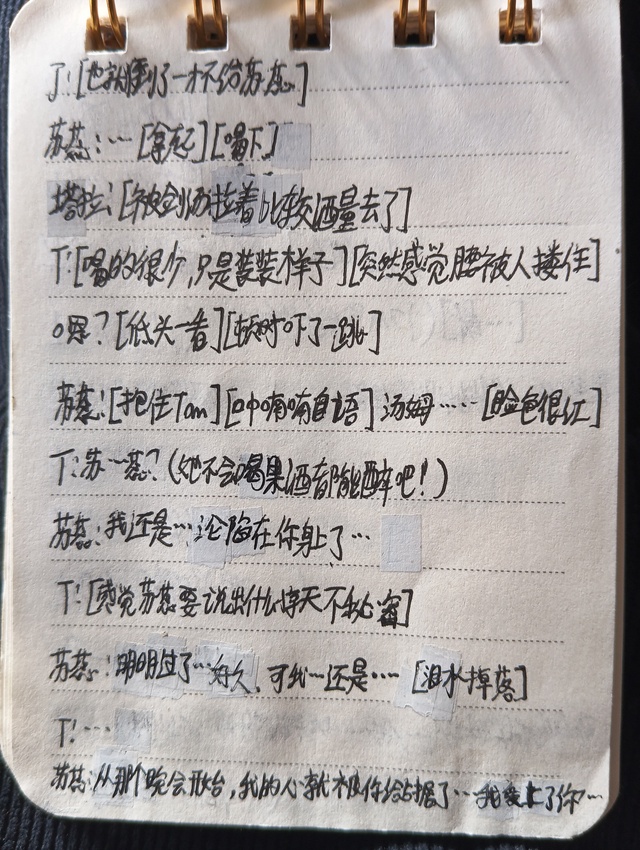 T：[也就倒了一杯给苏蕊]
苏蕊：…[拿起][喝下]
塔拉：[被剑汤拉着比较酒量去了]
T：[喝的很少，只是装装样子][突然感觉腰被人搂住]
嗯？[低头一看][顿时吓了一跳]
苏蕊：[抱住Tom][口中喃喃自语]汤姆……[脸色很红]
T：苏…蕊？（她不会喝果酒都能醉吧！）
苏蕊：我还是…沦陷在你身上了…
T：[感觉苏蕊要说出什么惊天不秘密]
苏蕊：明明过了…好久，可我…还是…[泪水掉落]
T：…
苏蕊：从那个晚会开始，我的心就被你给占据了…我爱上了你…